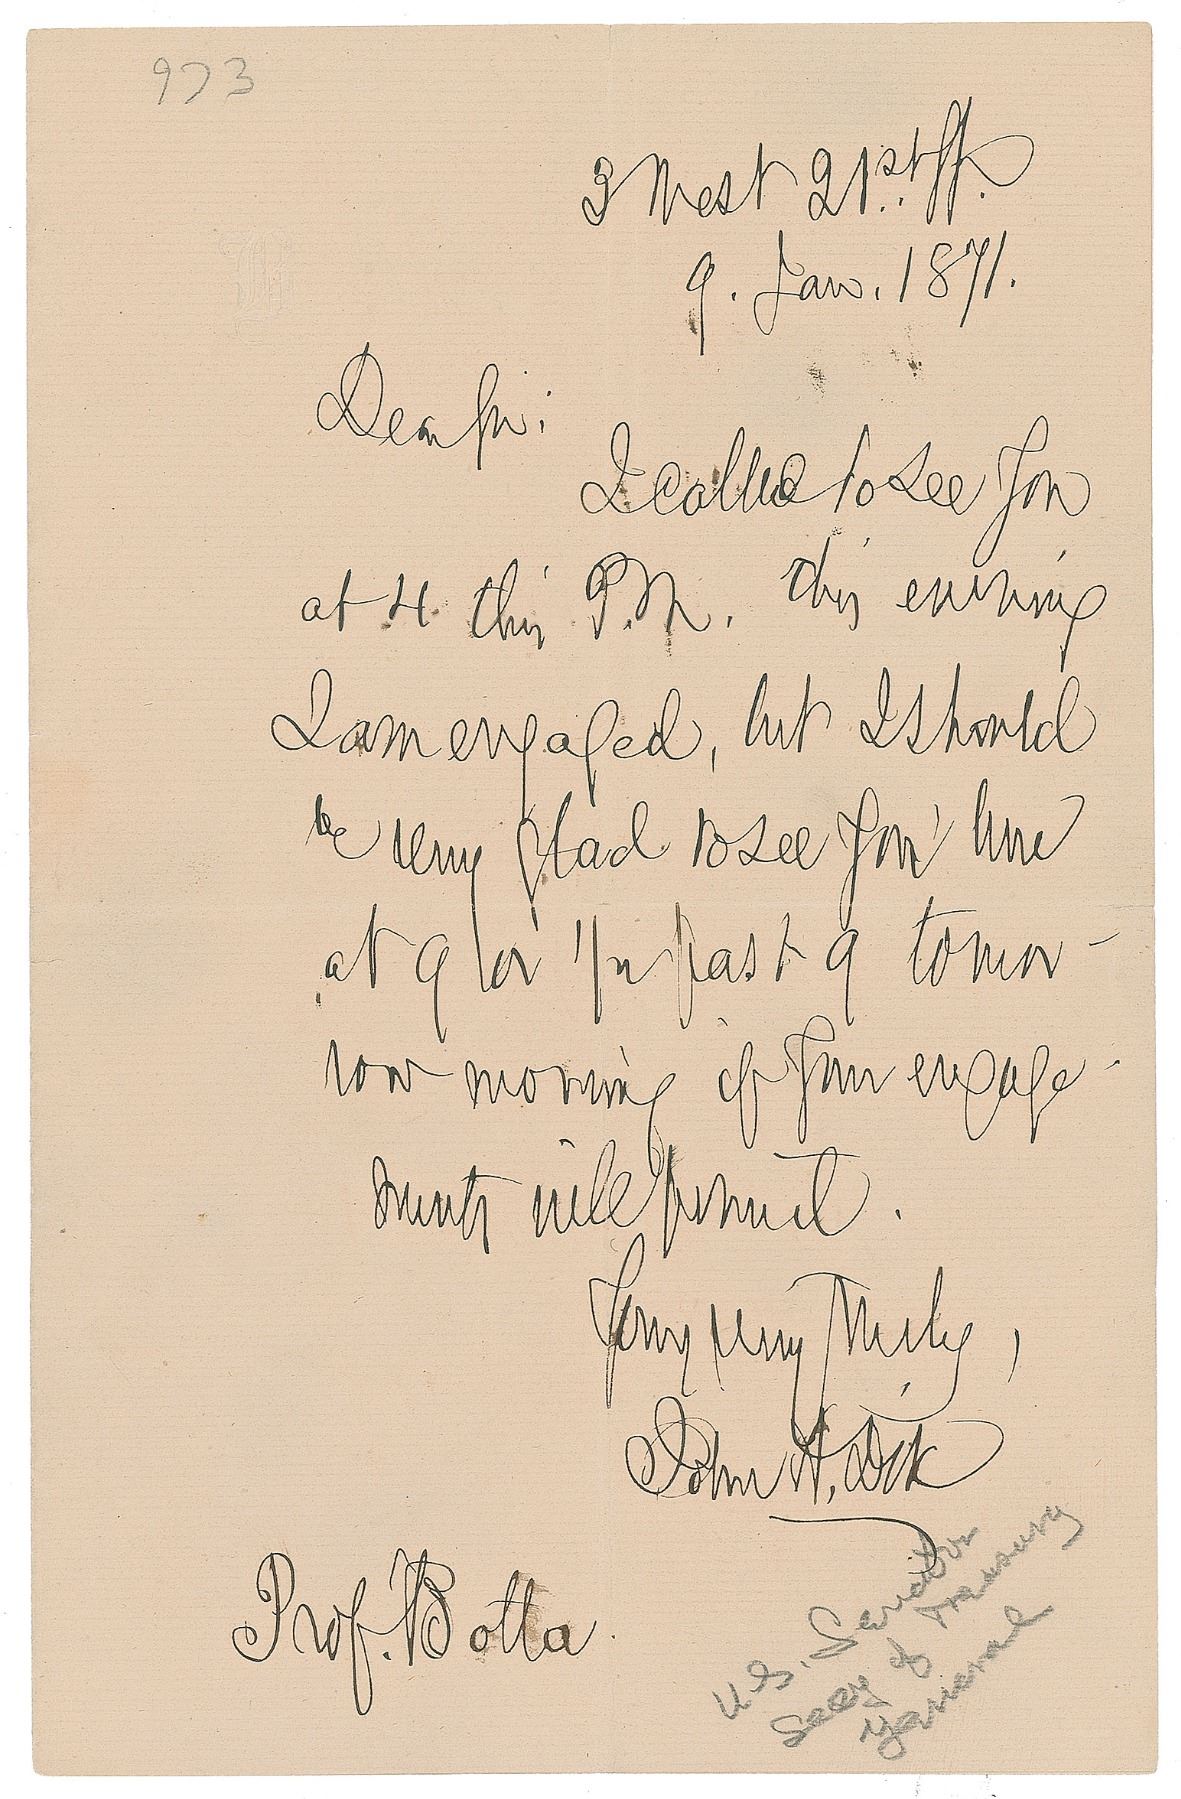 973
3 West 21st St.
9. Jan. 1871.
Dear Sir:
I called to see you
at 4 this P.M. This evening
I am engaged, but I should
be very glad to see you here
at 9 or 1/2 past 9 tomor-
row morning if your engage-
ments will permit.
Yours very truly,
John A. Dix
Prof. Botta
U.S. Senator
Secy of Treasury
General